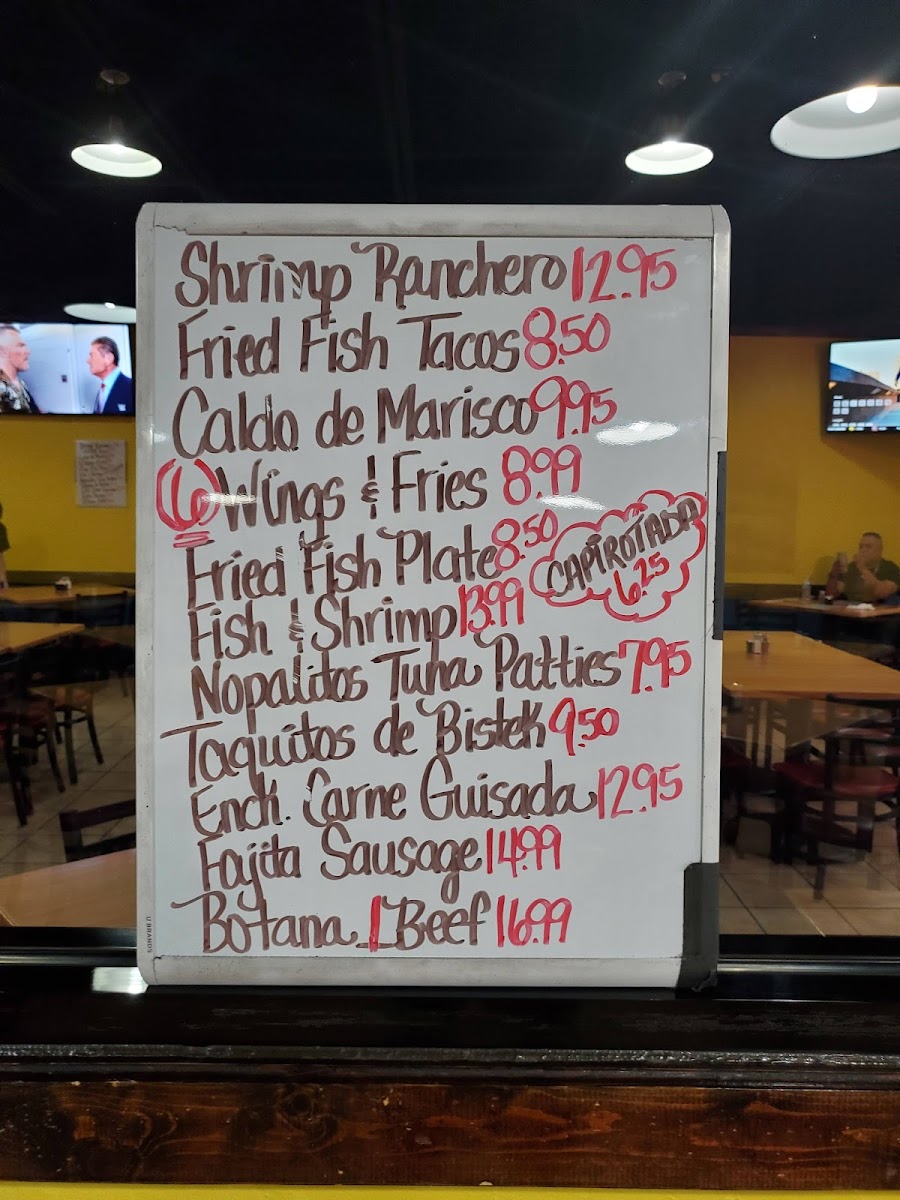 Shrimp Ranchero 12.95
Fried Fish Tacos 8.50
Caldo de Marisco 9.95
(6) Wings & Fries 8.99
Fried Fish Plate 8.50
CAPIROTADA
6.25
Fish & Shrimp 13.99
Nopalitos Tuna Patties 7.95
Taquitos de Bistek 9.50
Ench. Carne Guisada 12.95
Fajita Sausage 14.99
Botana 1 Beef 16.99
U BRANDS